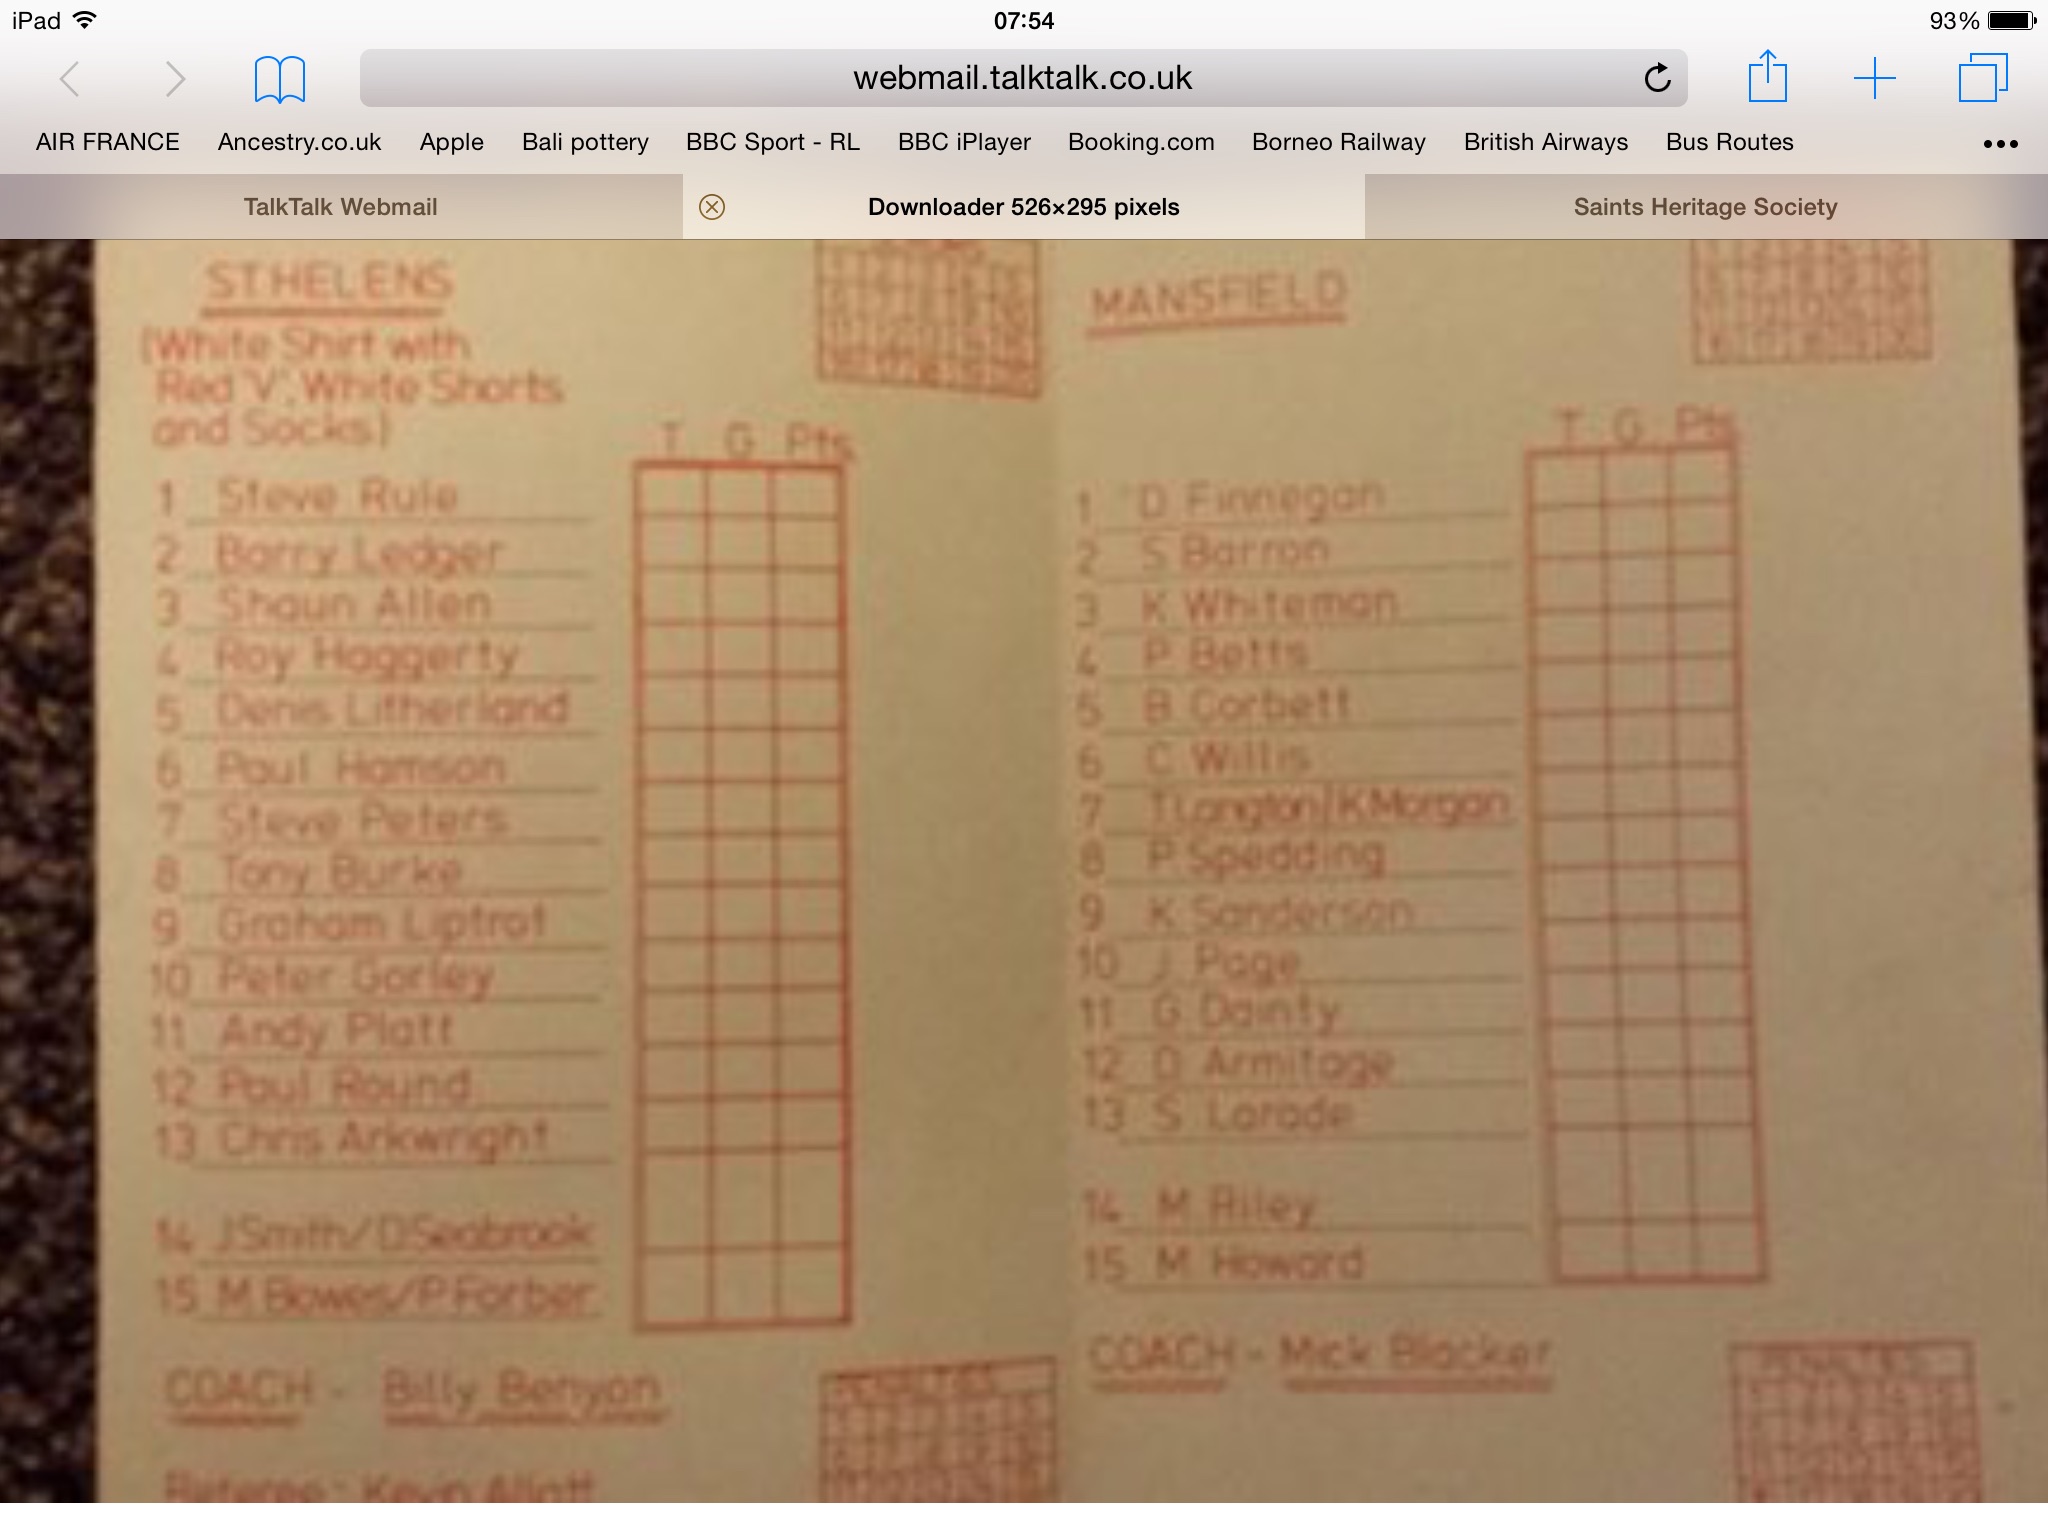 iPad
07:54
93%
webmail.talktalk.co.uk
AIR FRANCE
Ancestry.co.uk
Apple
Bali pottery
BBC Sport - RL
BBC iPlayer
Booking.com
Borneo Railway
British Airways
Bus Routes
TalkTalk Webmail
Downloader 526×295 pixels
Saints Heritage Society
ST HELENS
(White Shirt with
Red 'V', White Shorts
and Socks)
T G Pts
1 Steve Rule
2 Barry Ledger
3 Shaun Allen
4 Roy Haggerty
5 Denis Litherland
6 Paul Hamson
7 Steve Peters
8 Tony Burke
9 Graham Liptrot
10 Peter Gorley
11 Andy Platt
12 Paul Round
13 Chris Arkwright
14 J Smith/D Seabrook
15 M Bowes/P Forber
COACH - Billy Benyon
Referee - Kevin Allatt
MANSFIELD
T G Pts
1 D Finnegan
2 S Barron
3 K Whiteman
4 P Betts
5 B Corbett
6 C Willis
7 T Langton/K Morgan
8 P Spedding
9 K Sanderson
10 J Page
11 G Dainty
12 D Armitage
13 S Larade
14 M Riley
15 M Howard
COACH - Mick Blacker
PENALTIES